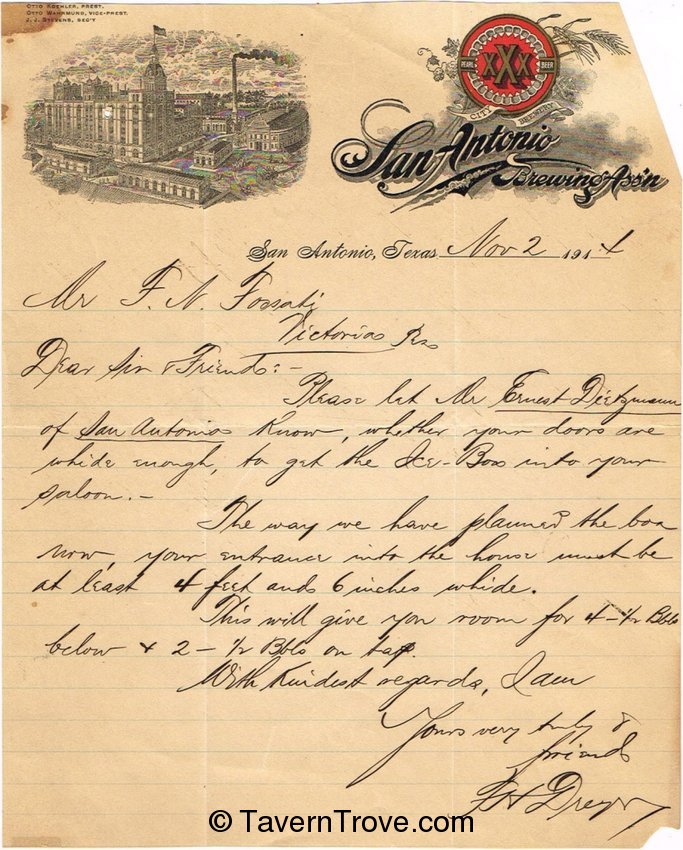 OTTO KOEHLER, PREST.
OTTO WAHRMUND, VICE-PREST.
J. J. STEVENS, SEC'Y
PEARL XXX BEER
CITY BREWERY
San Antonio
Brewing Ass'n
San Antonio, Texas Nov 2 1914
Mr F. N. Fossati
Victoria
Dear Sir & Friend:-
Please let Mr Ernest Dietzmann
of San Antonio Know, whether your doors are
whide enough, to get the Ice-Box into your
saloon.-
The way we have planned the box
now, your entrance into the house must be
at least 4 feet and 6 inches whide.
This will give you room for 4-1/2 Bbls
below & 2-1/2 Bbls on tap.
With Kindest regards, I am
Yours very truly &
friend
© TavernTrove.com